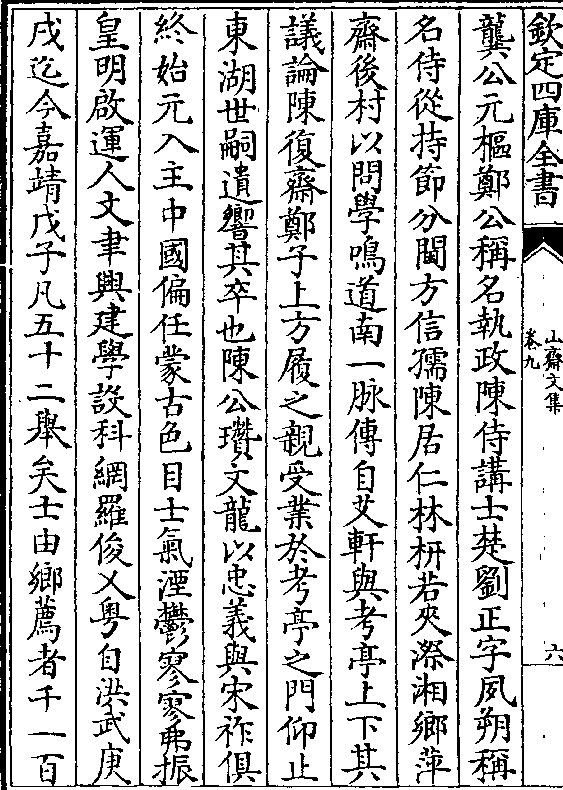 欽定四庫全書
山齋文集
卷九
六
龔公元樞鄭公稱名執政陳侍講士楚劉正字夙朔稱
名侍從持節分閫方信孺陳居仁林枅若夾漈湘鄉萍
齋後村以問學鳴道南一脉傳自艾軒與考亭上下其
議論陳復齋鄭子上方履之親受業於考亭之門仰止
東湖世嗣遺響其卒也陳公瓚文龍以忠義與宋祚俱
終始元入主中國偏任蒙古色目士氣湮鬱寥寥弗振
皇明啟運人文聿興建學設科網羅俊乂粤自洪武庚
戌迄今嘉靖戊子凡五十二舉矣士由鄉薦者千一百